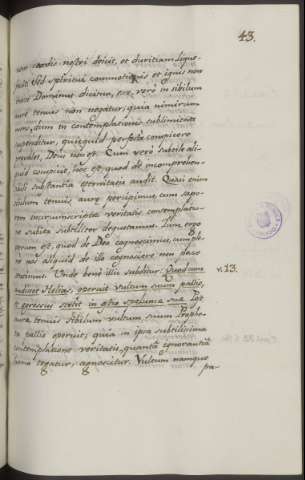 43.
cordis nostri doluit, et duritiam lique-
Sed spiritus commotionis et ignis non
Dominus dicitur, esse vero in sibilum
aure tenuis non negatur, quia nimirum
mens, cum in contemplationis sublimitate
suspenditur, quidquid perfecte conspicere
prevalet, Deus non est. Cum vero subtile ali-
quid conspicit, hoc est, quod de incomprehen-
sibili substantia eternitatis audit. Quasi enim
sibilum tenuis aure percipimus, cum sapo-
rem incircumscripte veritatis contemplatio-
ne subita subtiliter degustamus. Tunc ergo
verum est, quod de Deo cognoscimus, cum ple-
ne nos aliquid de illo cognoscere non posse
sentimus. Unde bene illic subditur: Quod cum
audisset Helias, operuit vultum suum pallio,
et egressus stetit in ostio spelunce sue. Post
aure tenuis sibilum vultum suum Prophe-
ta pallio operuit; quia in ipsa subtilissima
contemplatione veritatis, quanta ignorantia
homo tegatur, agnoscitur. Vultum namque
pa-
v. 13.